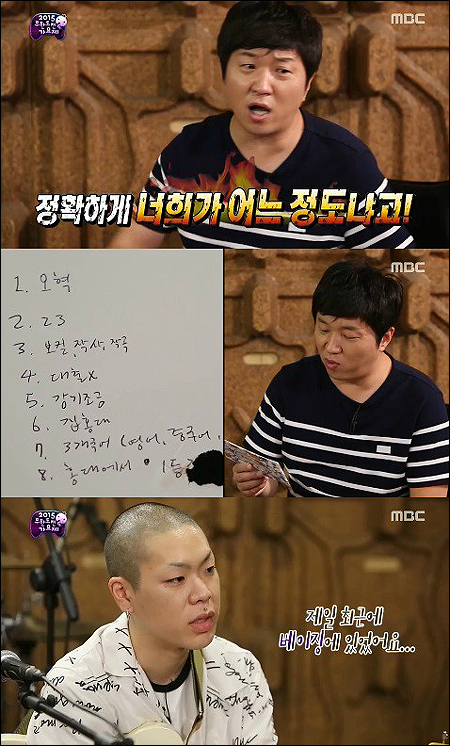 2015
무한도전
가요제
MBC
정확하게 너희가 어느 정도냐고!
1. 오혁
2. 23
3. 보컬, 작사, 작곡
4. 대학x
5. 감기조금
6. 집홍대
7. 3개국어 (영어, 중국어,
8. 홍대에서 1등
MBC
2015
무한도전
가요제
MBC
제일 최근에
베이징에 있었어요...